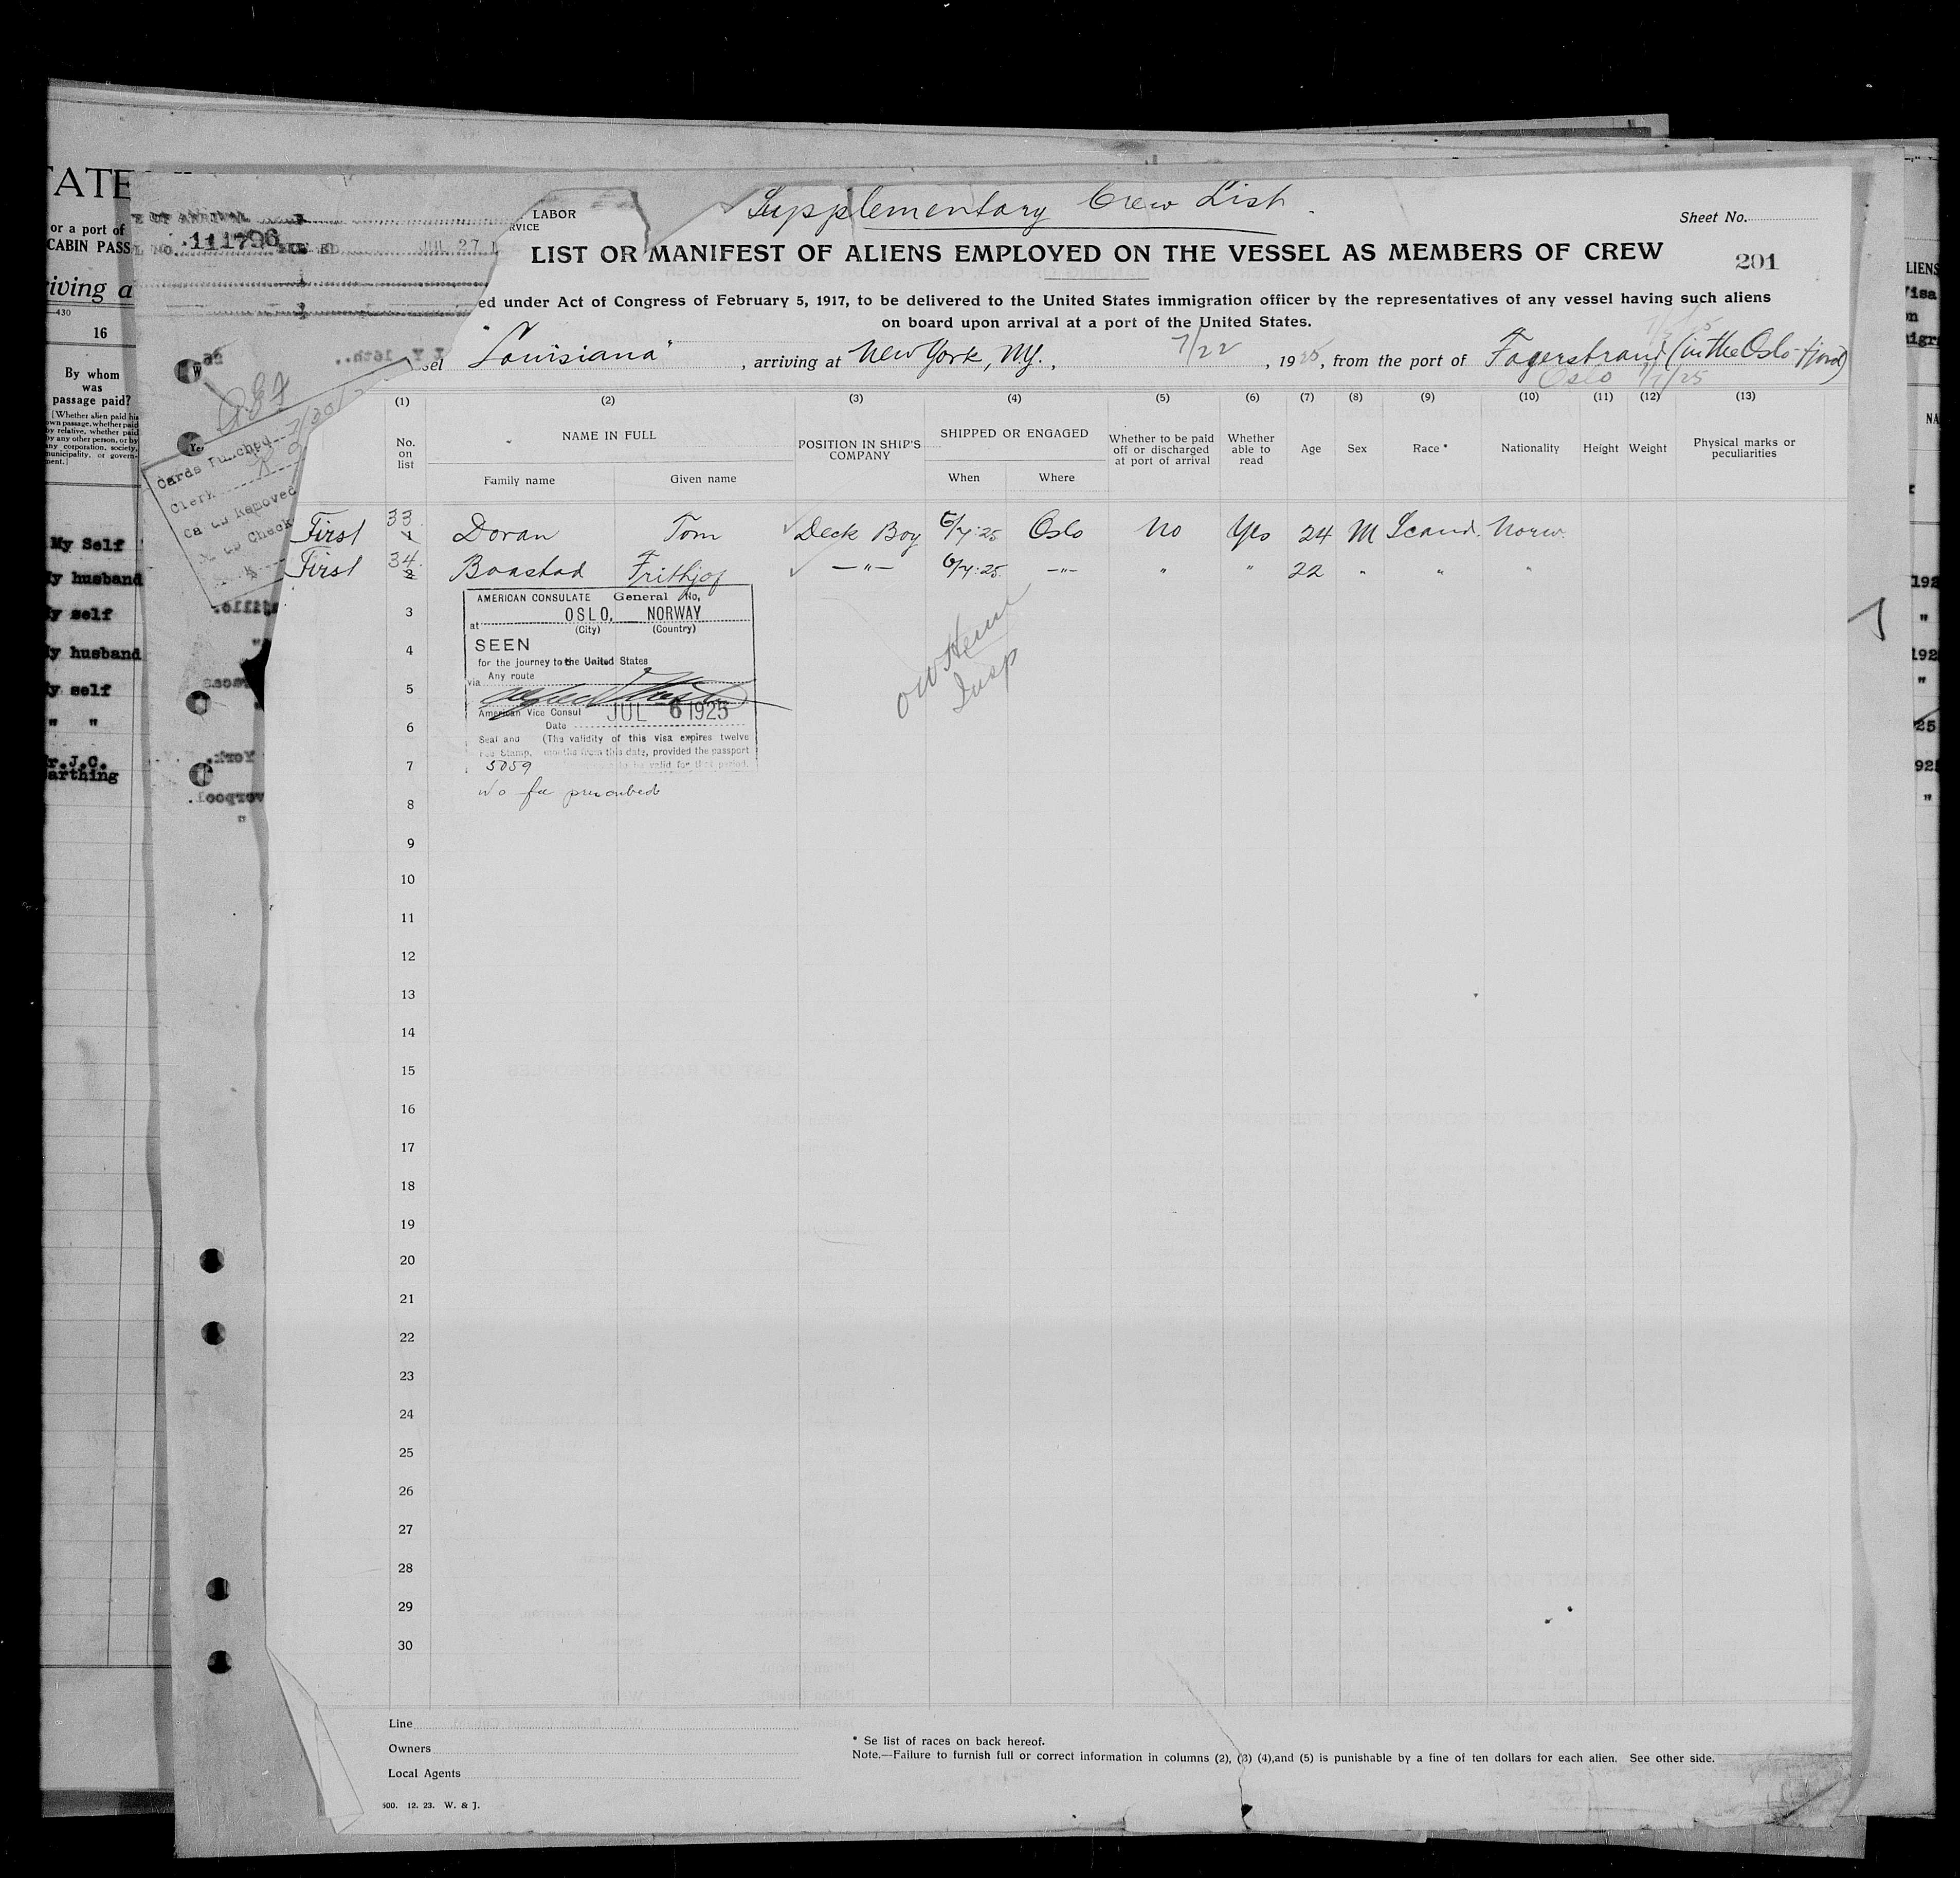 Supplementary Crew List.
LABOR
RVICE
Sheet No.
LIST OR MANIFEST OF ALIENS EMPLOYED ON THE VESSEL AS MEMBERS OF CREW
201
ed under Act of Congress of February 5, 1917, to be delivered to the United States immigration officer by the representatives of any vessel having such aliens
on board upon arrival at a port of the United States.
sel "Louisiana", arriving at New York, N.Y., 7/22, 1925, from the port of Fagerstrand (in the Oslo-fjord)
Oslo 7/7/25
(1) (2) (3) (4) (5) (6) (7) (8) (9) (10) (11) (12) (13)
No. on list
NAME IN FULL
Family name Given name
POSITION IN SHIP'S COMPANY
SHIPPED OR ENGAGED
When Where
Whether to be paid off or discharged at port of arrival
Whether able to read
Age Sex Race * Nationality Height Weight
Physical marks or peculiarities
First 33 1 Doran Tom Deck Boy 6/7:25 Oslo No Yes 24 M Scand. Norw.
First 34. 2 Baastad Frithjof —"— 6/7:25. —"— " " 22 " " "
AMERICAN CONSULATE General No,
at OSLO, NORWAY
(City) (Country)
SEEN
for the journey to the United States
via Any route
American Vice Consul
Date JUL 6 1925
Seal and (The validity of this visa expires twelve
Fee Stamp. months from this date, provided the passport
to be valid for that period.
5059
No fee prescribed
Insp
3
4
5
6
7
8
9
10
11
12
13
14
15
16
17
18
19
20
21
22
23
24
25
26
27
28
29
30
Line
Owners
Local Agents
* Se list of races on back hereof.
Note.—Failure to furnish full or correct information in columns (2), (3) (4),and (5) is punishable by a fine of ten dollars for each alien. See other side.
500. 12. 23. W. & J.
111796
JUL 27 1
Cards Punched
Clerk
TATE
or a port of
CABIN PASS
iving a
430
16
By whom
was
passage paid?
(Whether alien paid his
own passage, whether paid
by relative, whether paid
by any other person, or by
any corporation, society,
municipality, or govern-
ment.)
My Self
y husband
y self
y husband
y self
" "
r.J.C.
arthing
LIENS
isa
on
igr
NA
192
"
192
"
25
92
"